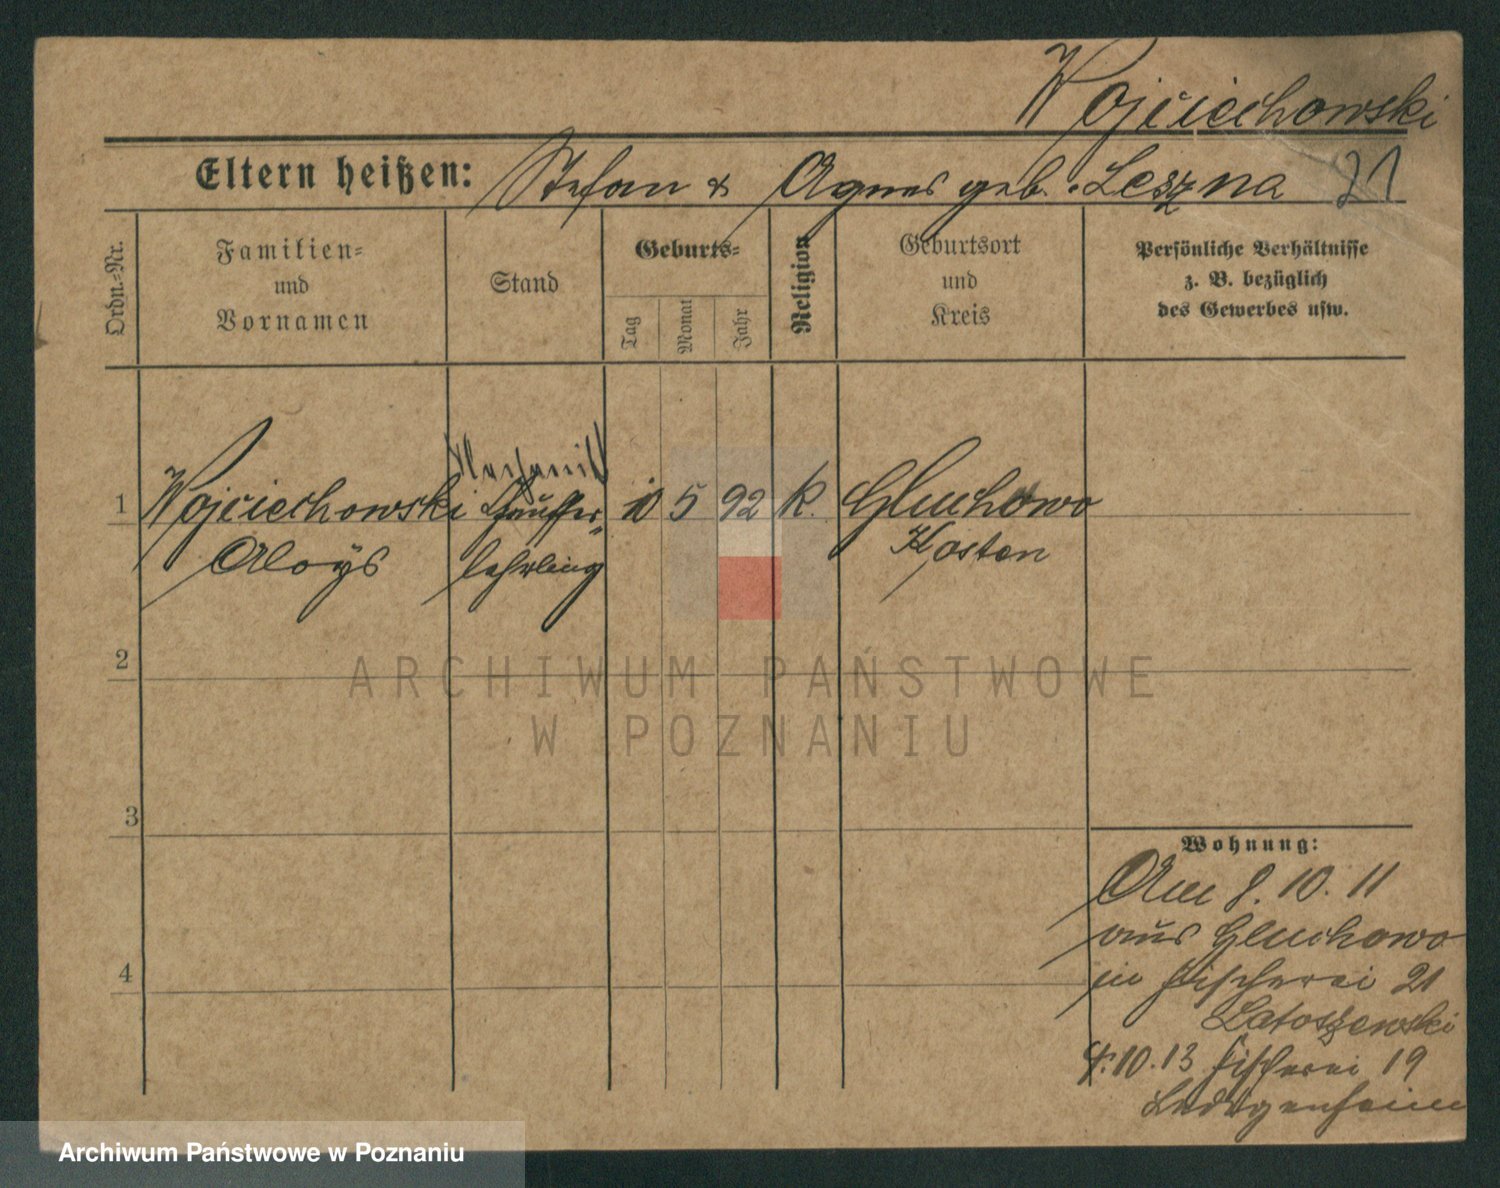 Wojciechowski
Eltern heißen: Stefan & Agnes geb. Leszna 21
Ordn.-Nr.
Familien-
und
Vornamen
Stand
Geburts-
Tag
Monat
Jahr
Religion
Geburtsort
und
Kreis
Persönliche Verhältnisse
z. B. bezüglich
des Gewerbes usw.
Mechanik
1 Wojciechowski 10 5 92 k. Gluchowo
Aloÿs lehrling Kosten
2
ARCHIWUM PAŃSTWOWE
W POZNANIU
3
4
Wohnung:
Am 8. 10. 11
aus Gluchowo
in Fischerei 21
Latoszewski
10.13 Fischerei 19
Archiwum Państwowe w Poznaniu